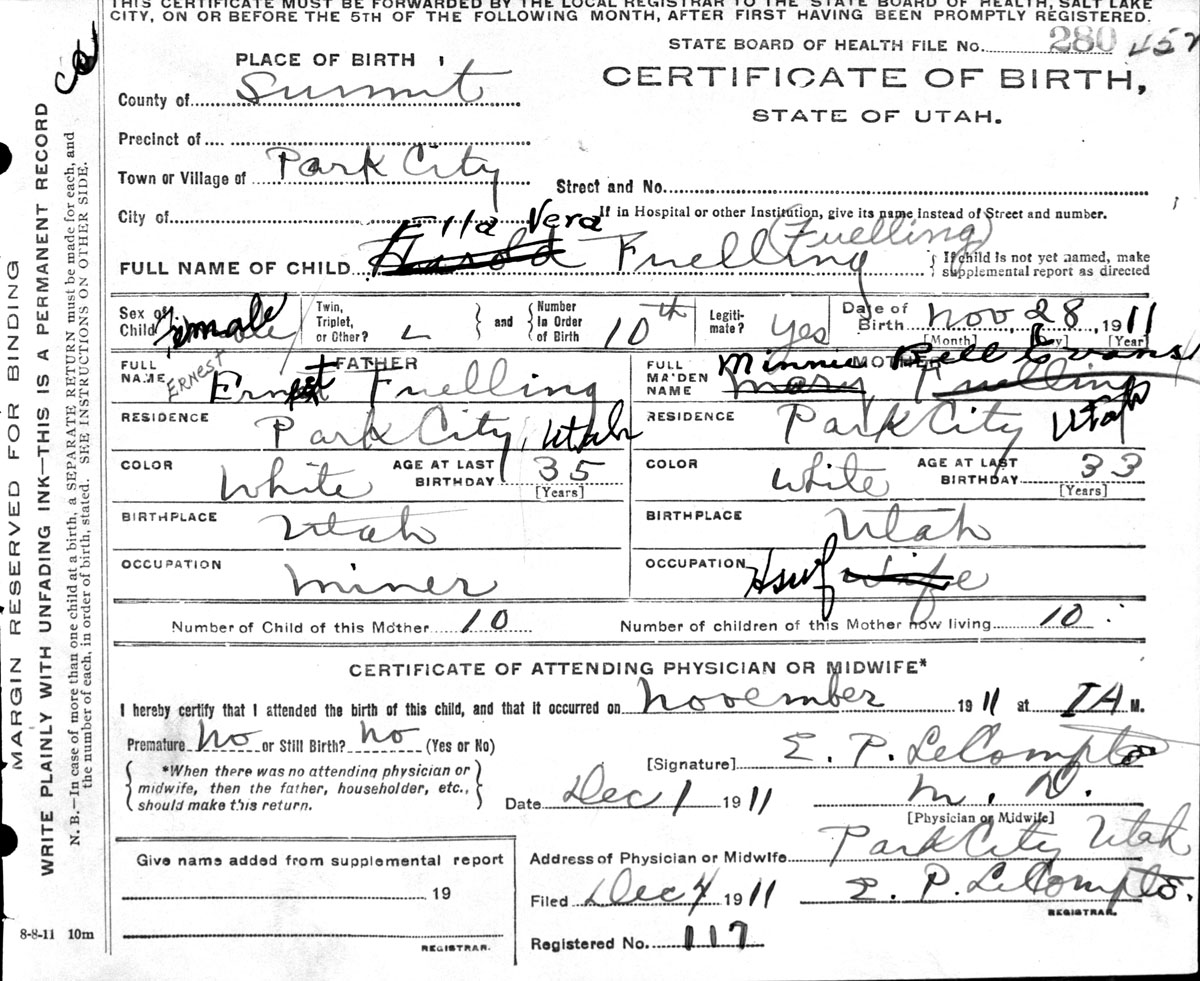 THIS CERTIFICATE MUST BE FORWARDED BY THE LOCAL REGISTRAR TO THE STATE BOARD OF HEALTH, SALT LAKE
CITY, ON OR BEFORE THE 5TH OF THE FOLLOWING MONTH, AFTER FIRST HAVING BEEN PROMPTLY REGISTERED.
STATE BOARD OF HEALTH FILE No. 280
PLACE OF BIRTH
CERTIFICATE OF BIRTH,
STATE OF UTAH.
County of Summit
Precinct of
Town or Village of Park City
Street and No.
City of
If in Hospital or other Institution, give its name instead of Street and number.
Ella Vera (Fuelling)
FULL NAME OF CHILD Harold Fuelling { If child is not yet named, make supplemental report as directed
Sex of Child Female
Twin, Triplet, or Other? } and { Number In Order of Birth 10th
Legitimate? Yes
Date of Birth Nov, 28, 1911
[Month] [Day] [Year]
FATHER
FULL NAME Ernest Fuelling
ERNEST
RESIDENCE Park City, Utah
COLOR White AGE AT LAST BIRTHDAY 35 [Years]
BIRTHPLACE Utah
OCCUPATION Miner
MOTHER
FULL MAIDEN NAME Minnie Bell Evans
Mary Fuelling
RESIDENCE Park City Utah
COLOR White AGE AT LAST BIRTHDAY 33 [Years]
BIRTHPLACE Utah
OCCUPATION Hswf wife
Number of Child of this Mother 10 Number of children of this Mother now living 10
CERTIFICATE OF ATTENDING PHYSICIAN OR MIDWIFE*
I hereby certify that I attended the birth of this child, and that it occurred on November 1911 at 1 A M.
Premature No or Still Birth? No (Yes or No)
{ *When there was no attending physician or midwife, then the father, householder, etc., should make this return. }
[Signature] E. P. LeCompte
M. D.
Date Dec 1 1911
[Physician or Midwife]
Address of Physician or Midwife Park City Utah
Filed Dec 4 1911 E. P. LeCompte.
REGISTRAR.
Registered No. 117
Give name added from supplemental report
19
REGISTRAR.
8-8-11 10m
MARGIN RESERVED FOR BINDING
WRITE PLAINLY WITH UNFADING INK—THIS IS A PERMANENT RECORD
N. B.—In case of more than one child at a birth, a SEPARATE RETURN must be made for each, and
the number of each, in order of birth, stated. SEE INSTRUCTIONS ON OTHER SIDE.